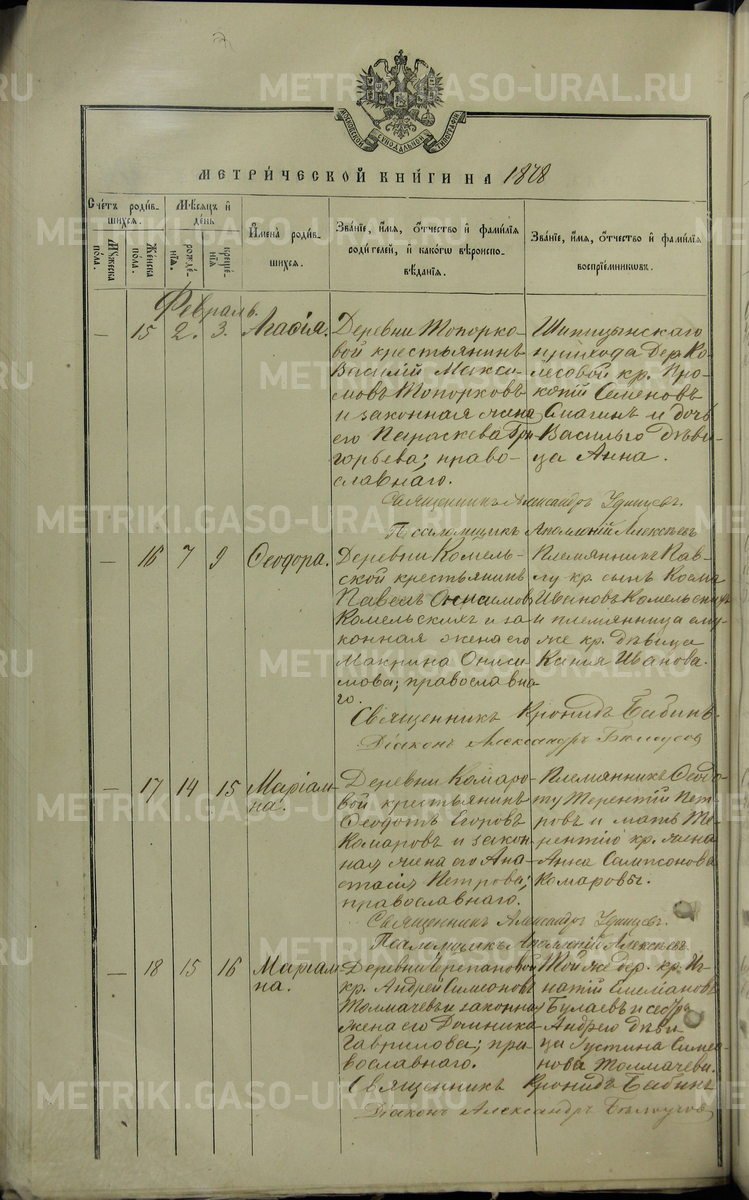 METRIKI.GASO-URAL.RU
МОСКОВСКОЙ СѴНОДАЛЬНОЙ ТИПОГРАФІИ
МЕТРИ́ЧЕСКОЙ КНИ́ГИ НА 1878
Сче́тъ роди́в-
шихся.
Мꙋ́жеска по́ла.
Же́нска по́ла.
Мѣ́сяцъ и҆
де́нь
рожде́-
нїѧ.
креще́-
нїѧ
И҆мена̀ роди́в-
шихся.
Зва́нїе, и҆́мя, ѻ҆́тчество и҆ фами́лїя
роди́телей, и҆ како́гѡ вѣроиспо-
вѣ́данїя.
Зва́нїе, и҆́мя, ѻ҆́тчество и҆ фами́лїя
воспрїе́мникѡвъ.
Февраль.
— 15 2. 3. Агасія.
Деревни Топорко-
вой крестьянинъ
Василій Макси-
мовъ Топорковъ
и законная жена
его Параскева Гри-
горьева; право-
славнаго.
Шипицынскаго
прихода Дер. Ко-
лесовой кр. Про-
копій Семеновъ
Смагинъ и дочь
Василья дѣви-
ца Анна.
Священникъ Александръ Удинцевъ.
Псаломщикъ Аполлоній Алексѣевъ
— 16 7 9 Ѳеодора.
Деревни Комель-
ской крестьянинъ
Павелъ Онисимовъ
Комельскихъ и за-
конная жена его
МакринаОниси-
мова; православна-
го.
Племянникъ Пав-
лу кр. сынъ Козма
Ивановъ Комельскихъ
и племянница ему
же кр. дѣвица
Ксенія Иванова.
Священникъ Кронидъ Бабинъ.
Діаконъ Александръ Бѣлоусов
— 17 14 15 Маріам-
на.
Деревни Комаро-
вой крестьянинъ
Ѳеодотъ Егоровъ
Комаровъ и закон-
ная жена его Ана-
стасія Петрова;
православнаго.
Племянникъ Ѳеодо-
ту Терентій Пет-
ровъ и мать Те-
рентію кр. жена
Анна Сампсонова
Комаровы.
Священникъ Александръ Удинцевъ.
Псаломщикъ Аполлоній Алексѣевъ
— 18 15 16 Маріам-
на.
Деревни Черепановой
кр. Андрей Симеоновъ
Толмачевъ и законная
жена его Домника
Гаврилова; пра-
вославнаго.
Той же дер. кр. Иг-
натій
Булаевъ и сестра
Андрею дѣви-
ца Густина Симео-
нова Толмачевы.
Священникъ Кронидъ Бабинъ
Діаконъ Александръ Бѣлоусов